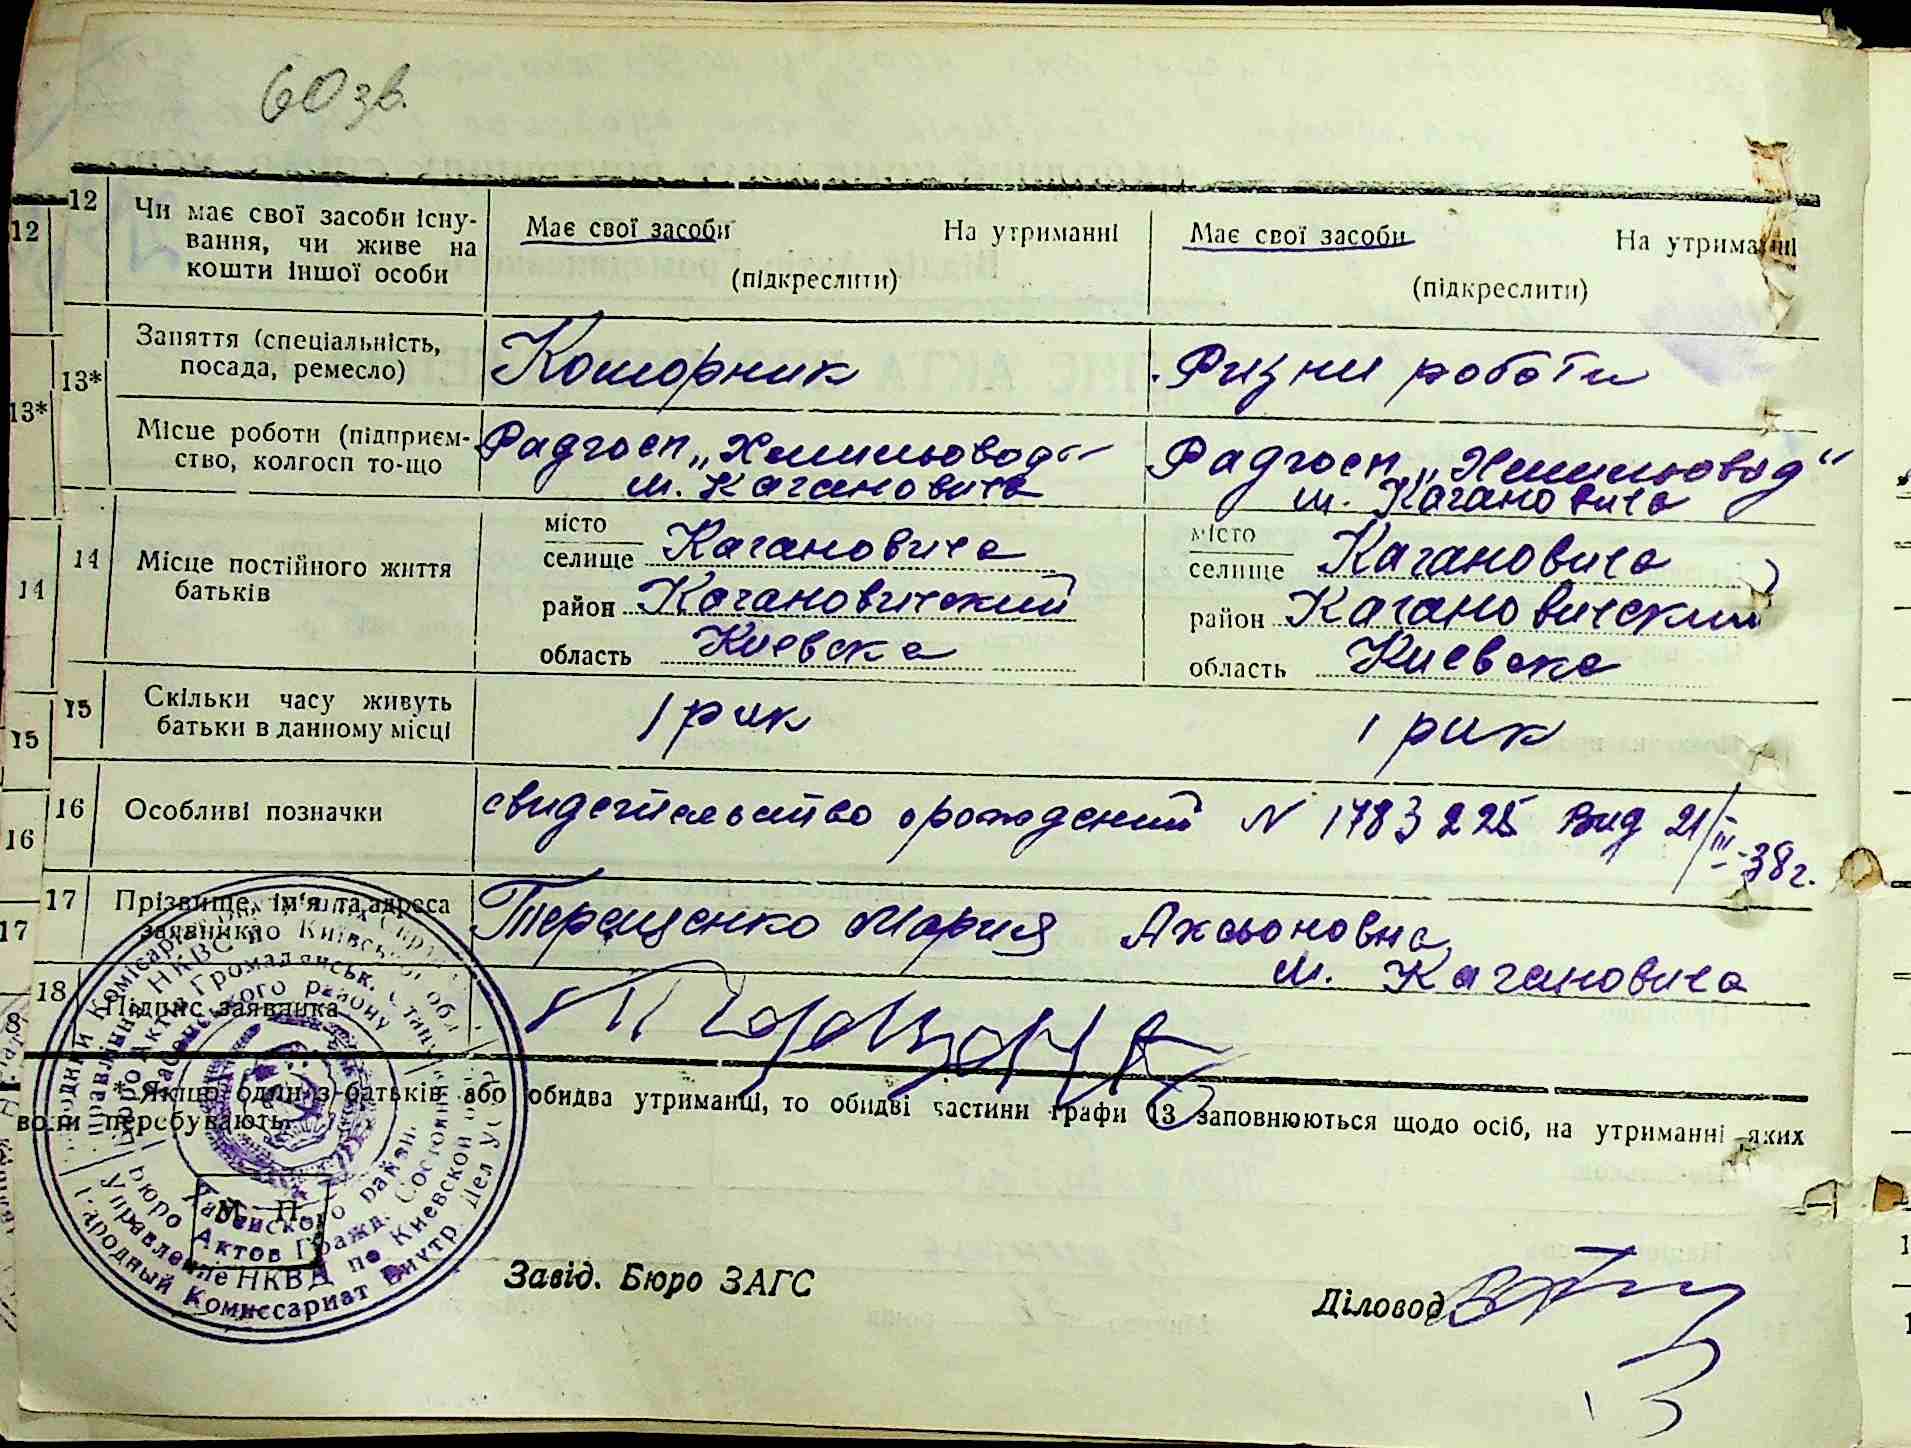 60 зв.
12
Чи має свої засоби існу-
вання, чи живе на
кошти іншої особи
Має свої засоби На утриманні
(підкреслити)
Має свої засоби На утриманні
(підкреслити)
13*
Заняття (спеціальність,
посада, ремесло)
Коморник
Физни роботи
Місце роботи (підприєм-
ство, колгосп то-що
Радгосп „Хмильовод“
м. Кагановича
Радгосп „Хмильовод“
м. Кагановича
14
Місце постійного життя
батьків
місто
селище Кагановича
район Кагановичский
область Киевска
місто
селище Кагановича
район Кагановичский
область Киевска
15
Скільки часу живуть
батьки в данному місці
1 рик
1 рик
16
Особливі позначки
свидетельство о рождений N 1783225 вид 21/III-38 г.
17
Прізвище, ім'я та адреса
заявника
Терещенко Мария Аксьоновна
м. Кагановича
18
Підпис заявника
Якщо один з батьків або обидва утриманці, то обидві частини графи 13 заповнюються щодо осіб, на утриманні яких
вони перебувають.
М. П.
Народный Комиссариат Внутр. Дел УССР
Управление НКВД по Киевской обл.
Бюро Актов Гражд. Состояния
Завід. Бюро ЗАГС
Діловод
12
13*
14
15
16
17